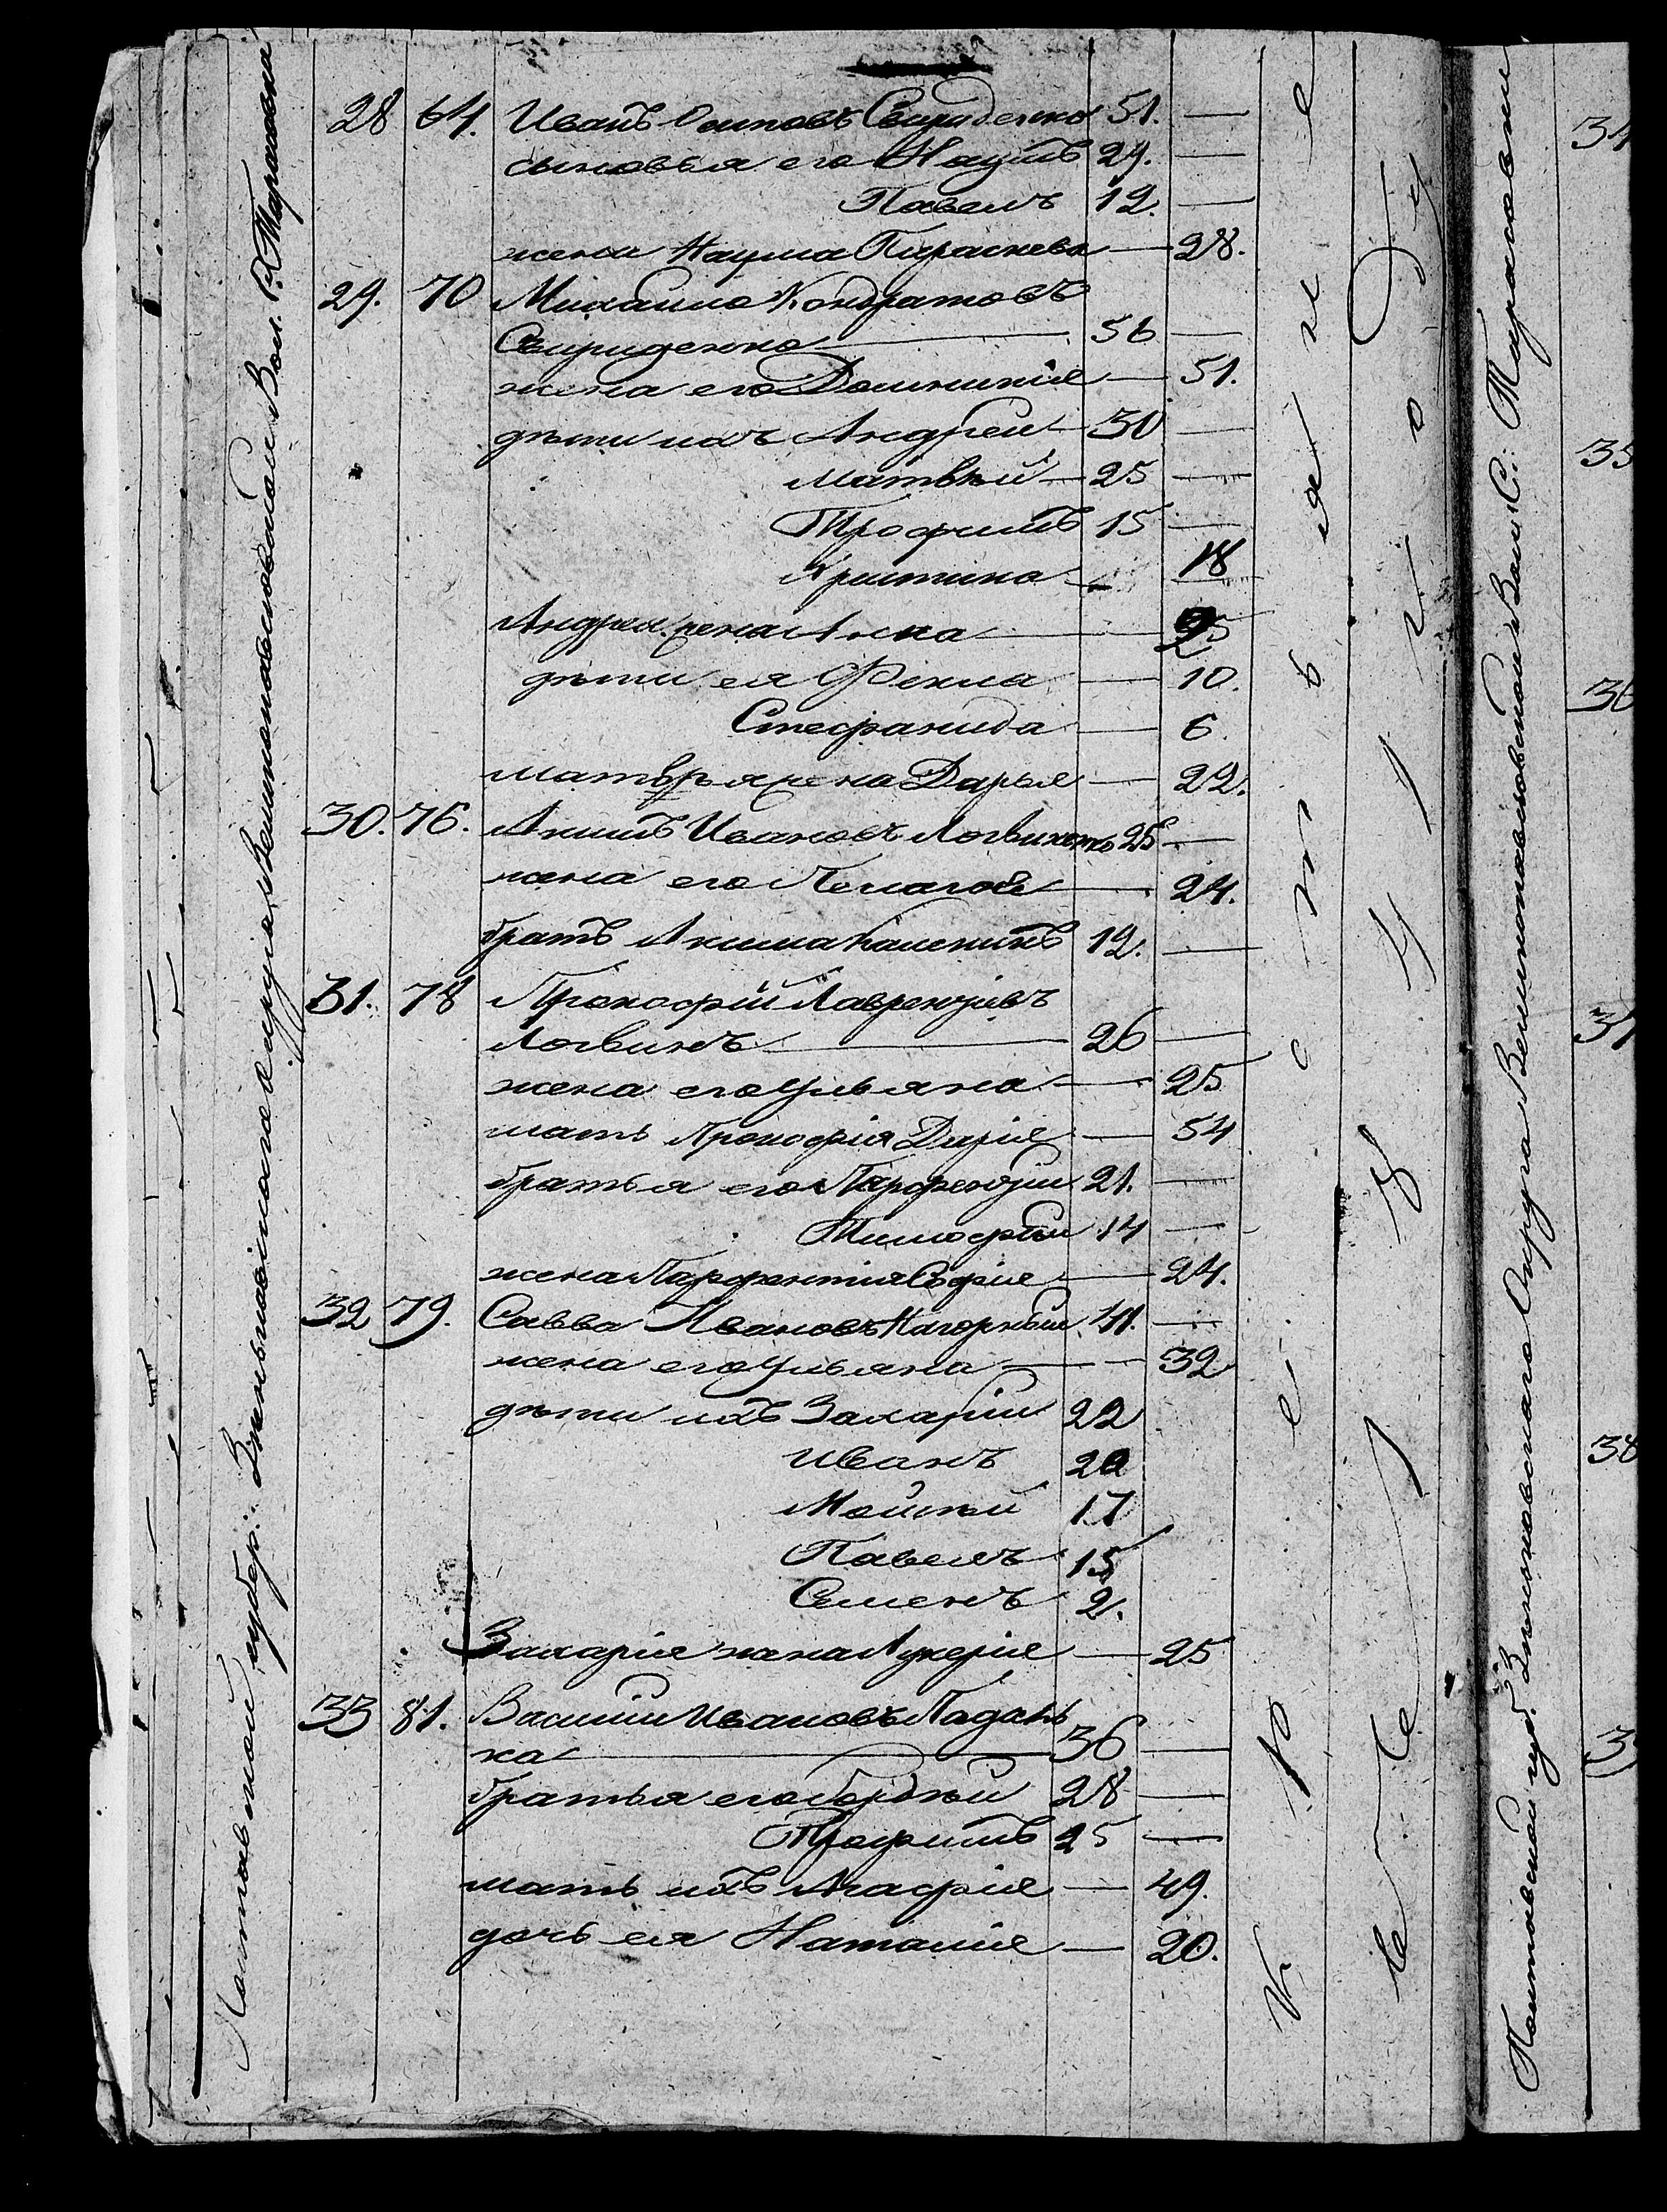 Полтавской губер: Зѣньковскаго округа, Великопавловской Вол. С. Тарасовка
28 64. Иванъ Осиповъ Свириденко 51. —
сыновья его Наумъ 29. —
Павелъ 12. —
жена Наума Параскева — 28.
29. 70 Михайло Кондратовъ
Свириденко — 56 —
жена его Домникія — 51.
дѣти ихъ Андрей 30 —
Матвѣй 25 —
Трофимъ 15 —
Христина — 18
Андрея жена Анна — 25
дѣти ея Фекла — 10.
Стефанида — 6.
Матвѣя жена Дарья — 22.
30. 76. Акимъ Ивановъ Логвиненко 25 —
жена его Пелагея — 24.
братъ Акима Калиникъ 12. —
31. 78 Прокофій Лаврентіивъ
Логвинъ — 26 —
жена его Ульяна — 25
мать Прокофія Дарія — 54
братья его Парфентій 21. —
Тимофѣй 14 —
жена Парфентія Софія — 24.
32 79. Савва Ивановъ Нагорный 41. —
жена его Ульяна — 32
дѣти ихъ Захарій 22
Иванъ 20
Мойсѣй 17
Павелъ 15
Семенъ 2.
Захарія жена Лукерія — 25
33 81. Василій Ивановъ Падал
ка — 36 —
братья его 28 —
Трофимъ 25 —
мать ихъ Агафія — 49.
дочь ея Наталія — 20.
Крестьяне
Полтавской губ. Зѣньковскаго Округа Великопавловской Вол. С. Тарасовки
34
35
36
37
38